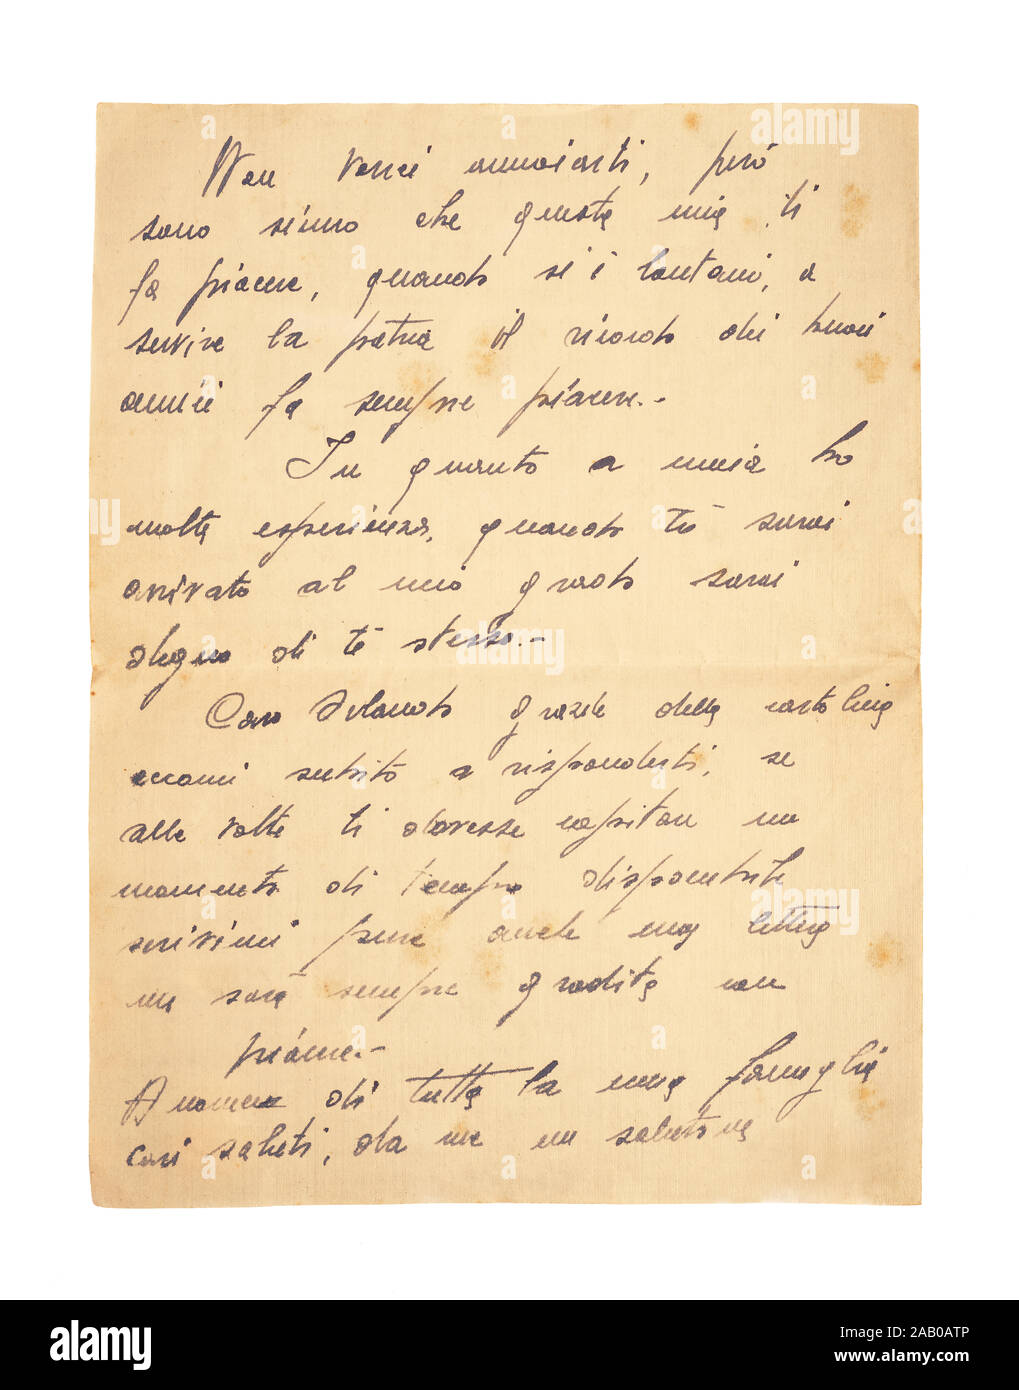 Non vorrei annoiarti, però
sono sicuro che questa mia ti
fa piacere, quando si è lontani, a
servire la patria il ricordo dei buoni
amici fa sempre piacere.-
In quanto a mia ho
molta esperienza, quando tu sarai
arrivato al mio grado sarai
degno di te stesso.-
Caro grazie della cartolina
eccomi subito a risponderti, se
alle volte ti dovesse capitare un
momento di tempo disponibile
scrivimi pure anche una lettera
mi sarà sempre gradita con
piacere.-
A nome di tutta la mia famiglia
cari saluti, da me un salutone
alamy
Image ID: 2AB0ATP
www.alamy.com